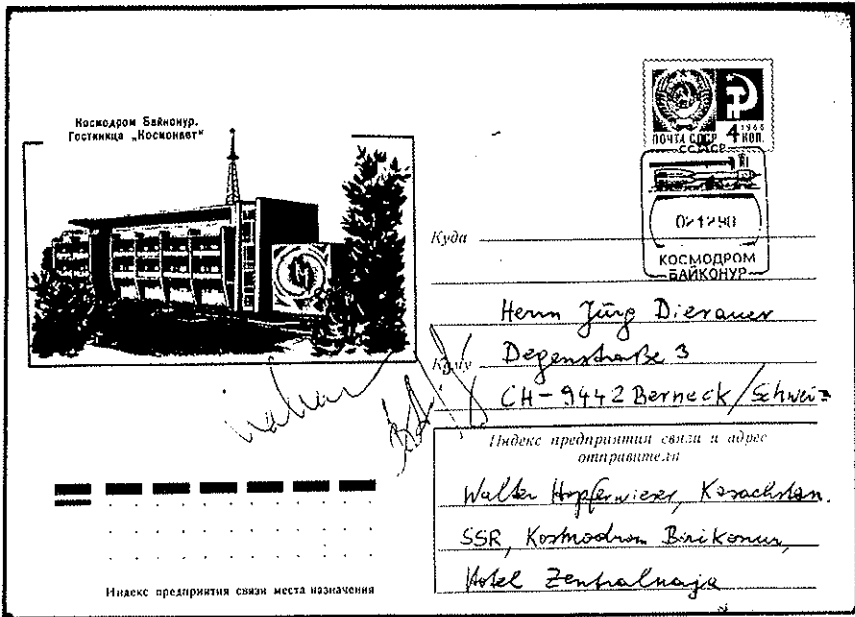 Космодром Байконур.
Гостиница „Космонавт"
ПОЧТА СССР
4 1966
КОП.
СССР
021290
КОСМОДРОМ
БАЙКОНУР
Куда
Herrn Jürg Dierauer
Кому Degenstraße 3
CH-9442 Berneck/Schweiz
Индекс предприятия связи и адрес
отправителя
Walter Hopferwieser, Kasachstan.
SSR, Kosmodrom Baikonur,
Hotel Zentralnaja
Индекс предприятия связи места назначения